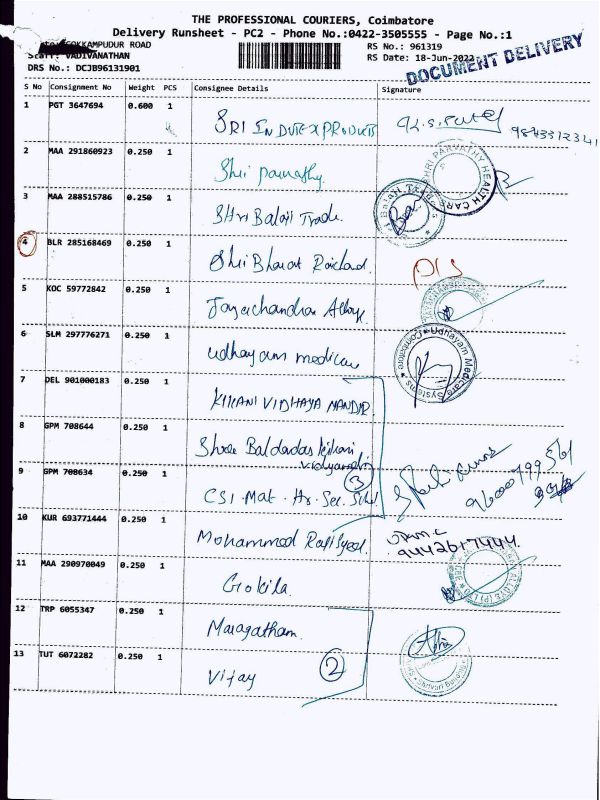 THE PROFESSIONAL COURIERS, Coimbatore
Delivery Runsheet - PC2 - Phone No.:0422-3505555 - Page No.:1
GOKKAMPUDUR ROAD
RS No.: 961319
Staff: VADIVANATHAN
RS Date: 18-Jun-2022
DOCUMENT DELIVERY
DRS No.: DCJB96131901
S No Consignment No Weight PCS Consignee Details Signature
1 PGT 3647694 0.600 1
SRI INDUTEX PRODUCTS
2 MAA 291860923 0.250 1
Shri parvathy
SHRI PARVATHY HEALTH CARE
3 MAA 288515786 0.250 1
SHri Balaji Trade.
4 BLR 285168469 0.250 1
Shri Bharat Raichand.
5 KOC 59772842 0.250 1
Jayachandran Alloys
6 SLM 297776271 0.250 1
udhayam medicare
Udhayam Medicare Systems * Coimbatore *
7 DEL 901000183 0.250 1
KIKANI VIDHAYA MANDIR
8 GPM 708644 0.250 1
Shree Baldevdas kikani
vidyamandir
3
9 GPM 708634 0.250 1
CSI. Mat. Hr. Sec. Schl
10 KUR 693771444 0.250 1
Mohammed Rafi Syed.
11 MAA 290970049 0.250 1
Gokila
12 TRP 6055347 0.250 1
Maragatham.
13 TUT 6072282 0.250 1
2
Vijay